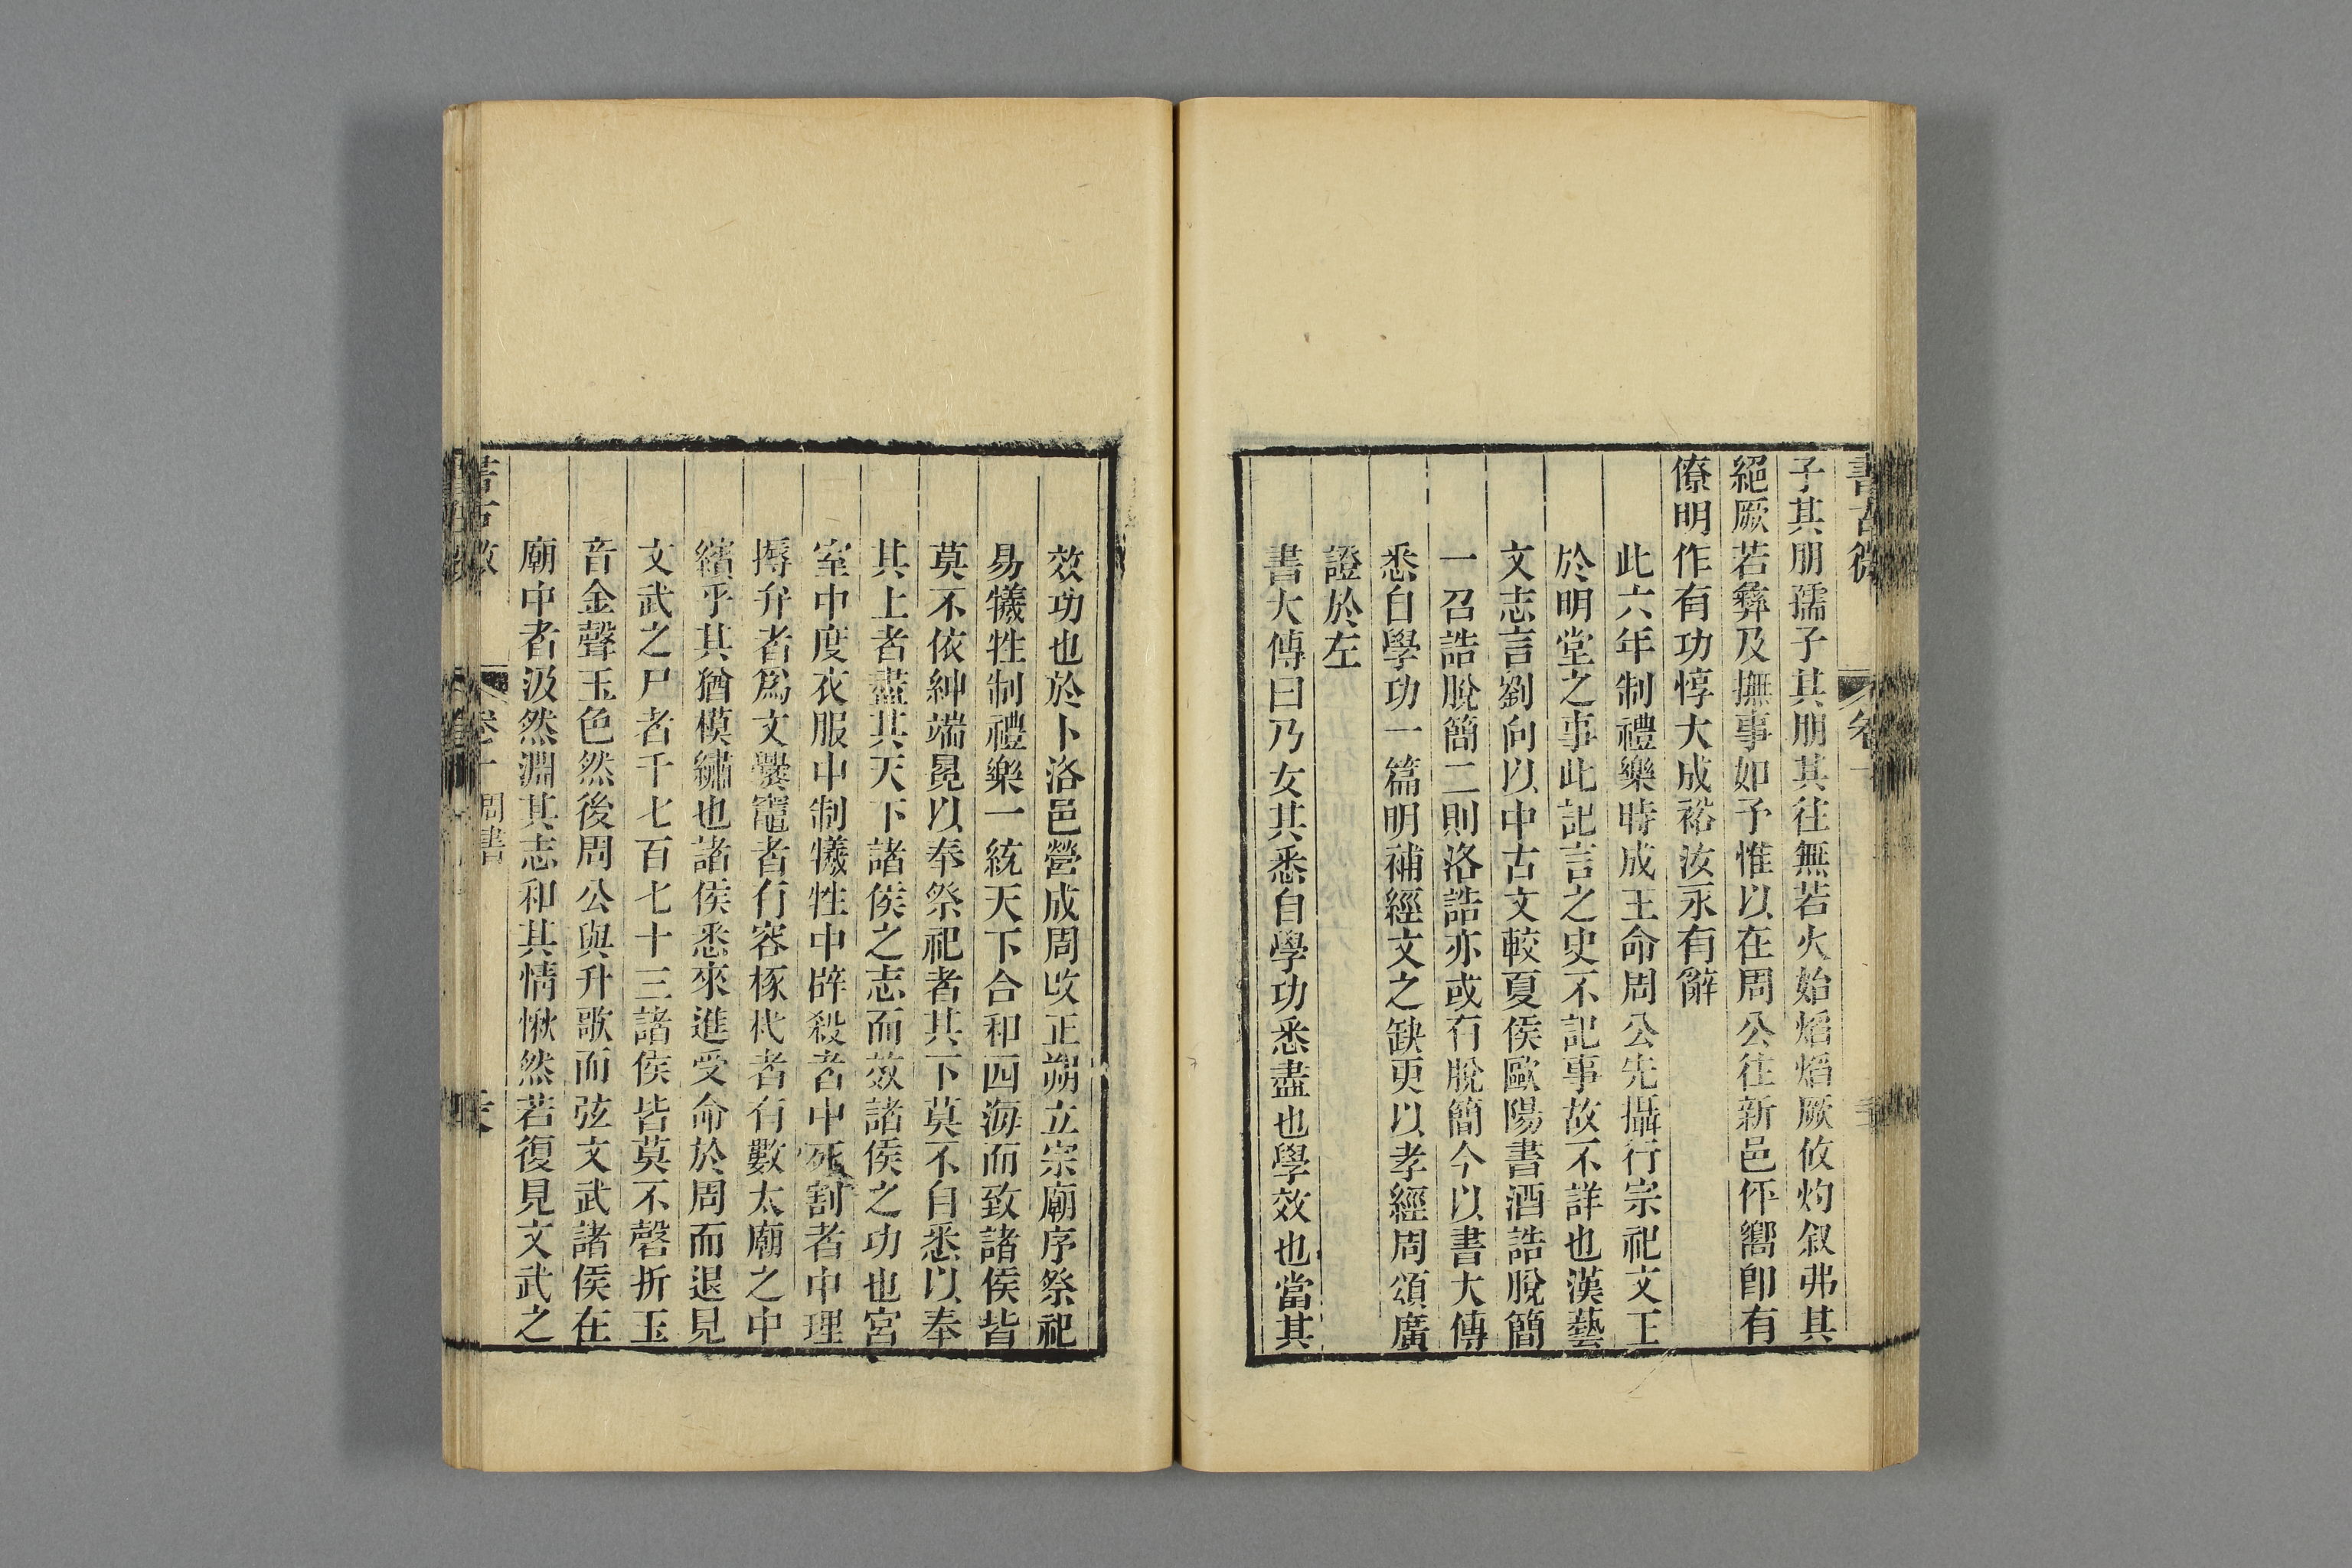 書古微
卷十
子其朋孺子其朋其往無若火始燄燄厥攸灼叙弗其
絕厥若彝及撫事如予惟以在周公往新邑伻嚮卽有
僚明作有功惇大成裕汝永有辭
此六年制禮樂時成王命周公先攝行宗祀文王
於明堂之事此記言之史不記事故不詳也漢藝
文志言劉向以中古文較夏侯歐陽書酒誥脫簡
一召誥脫簡二則洛誥亦或有脫簡今以書大傳
悉自學功一篇明補經文之缺更以孝經周頌廣
證於左
書大傳曰乃女其悉自學功悉盡也學效也當其
效功也於卜洛邑營成周改正朔立宗廟序祭祀
易犧牲制禮樂一統天下合和四海而致諸侯皆
莫不依紳端冕以奉祭祀者其下莫不自悉以奉
其上者盡其天下諸侯之志而效諸侯之功也宮
室中度衣服中制犧牲中辟殺者中死割者中理
搏弁者爲文爨竈者有容椓杙者有數太廟之中
繽乎其猶模繡也諸侯悉來進受命於周而退見
文武之尸者千七百七十三諸侯皆莫不磬折玉
音金聲玉色然後周公與升歌而弦文武諸侯在
廟中者汲然淵其志和其情愀然若復見文武之
書古微
卷十
周書